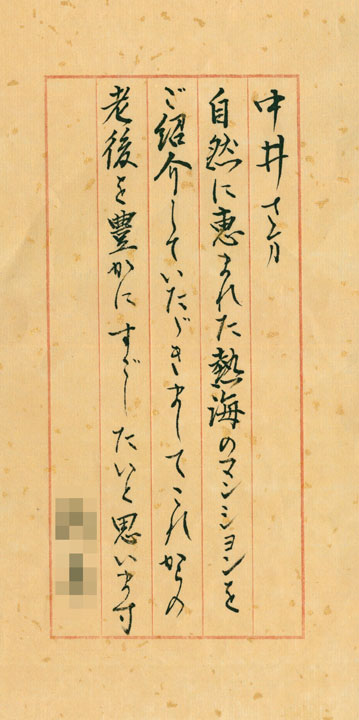 中井さん
自然に恵まれた熱海のマンションを
ご紹介していたゞきましてこれからの
老後を豊かにすごしたいと思います